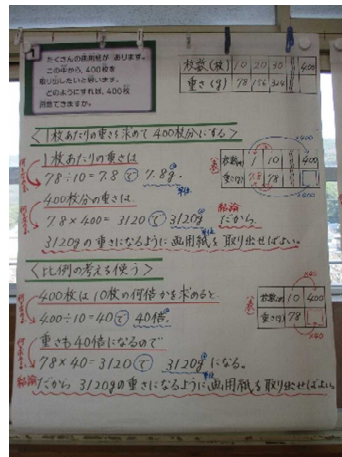 1
たくさんの画用紙が あります。
この中から、400枚を
取り出したいと思います。
どのようにすれば、400枚
用意できますか。
枚数(枚) 10 20 30 400
重さ(g) 78 156 234
<1枚あたりの重さを求めて400枚分にする>
1枚あたりの重さは
78÷10=7.8 で 7.8g。
400枚分の重さは
7.8×400=3120 で 3120g
だから
3120gの重さになるように画用紙を取り出せばよい。
枚数(枚) 1 10 400
重さ(g) 7.8 78
×400
×400
<比例の考えを使う>
400枚は10枚の何倍かを求めると
400÷10=40 で 40倍。
重さも40倍になるので
78×40=3120 で 3120g になる。
結論
だから 3120gの重さになるように画用紙を取り出せばよい。
枚数(枚) 10 400
重さ(g) 78
×40
×40